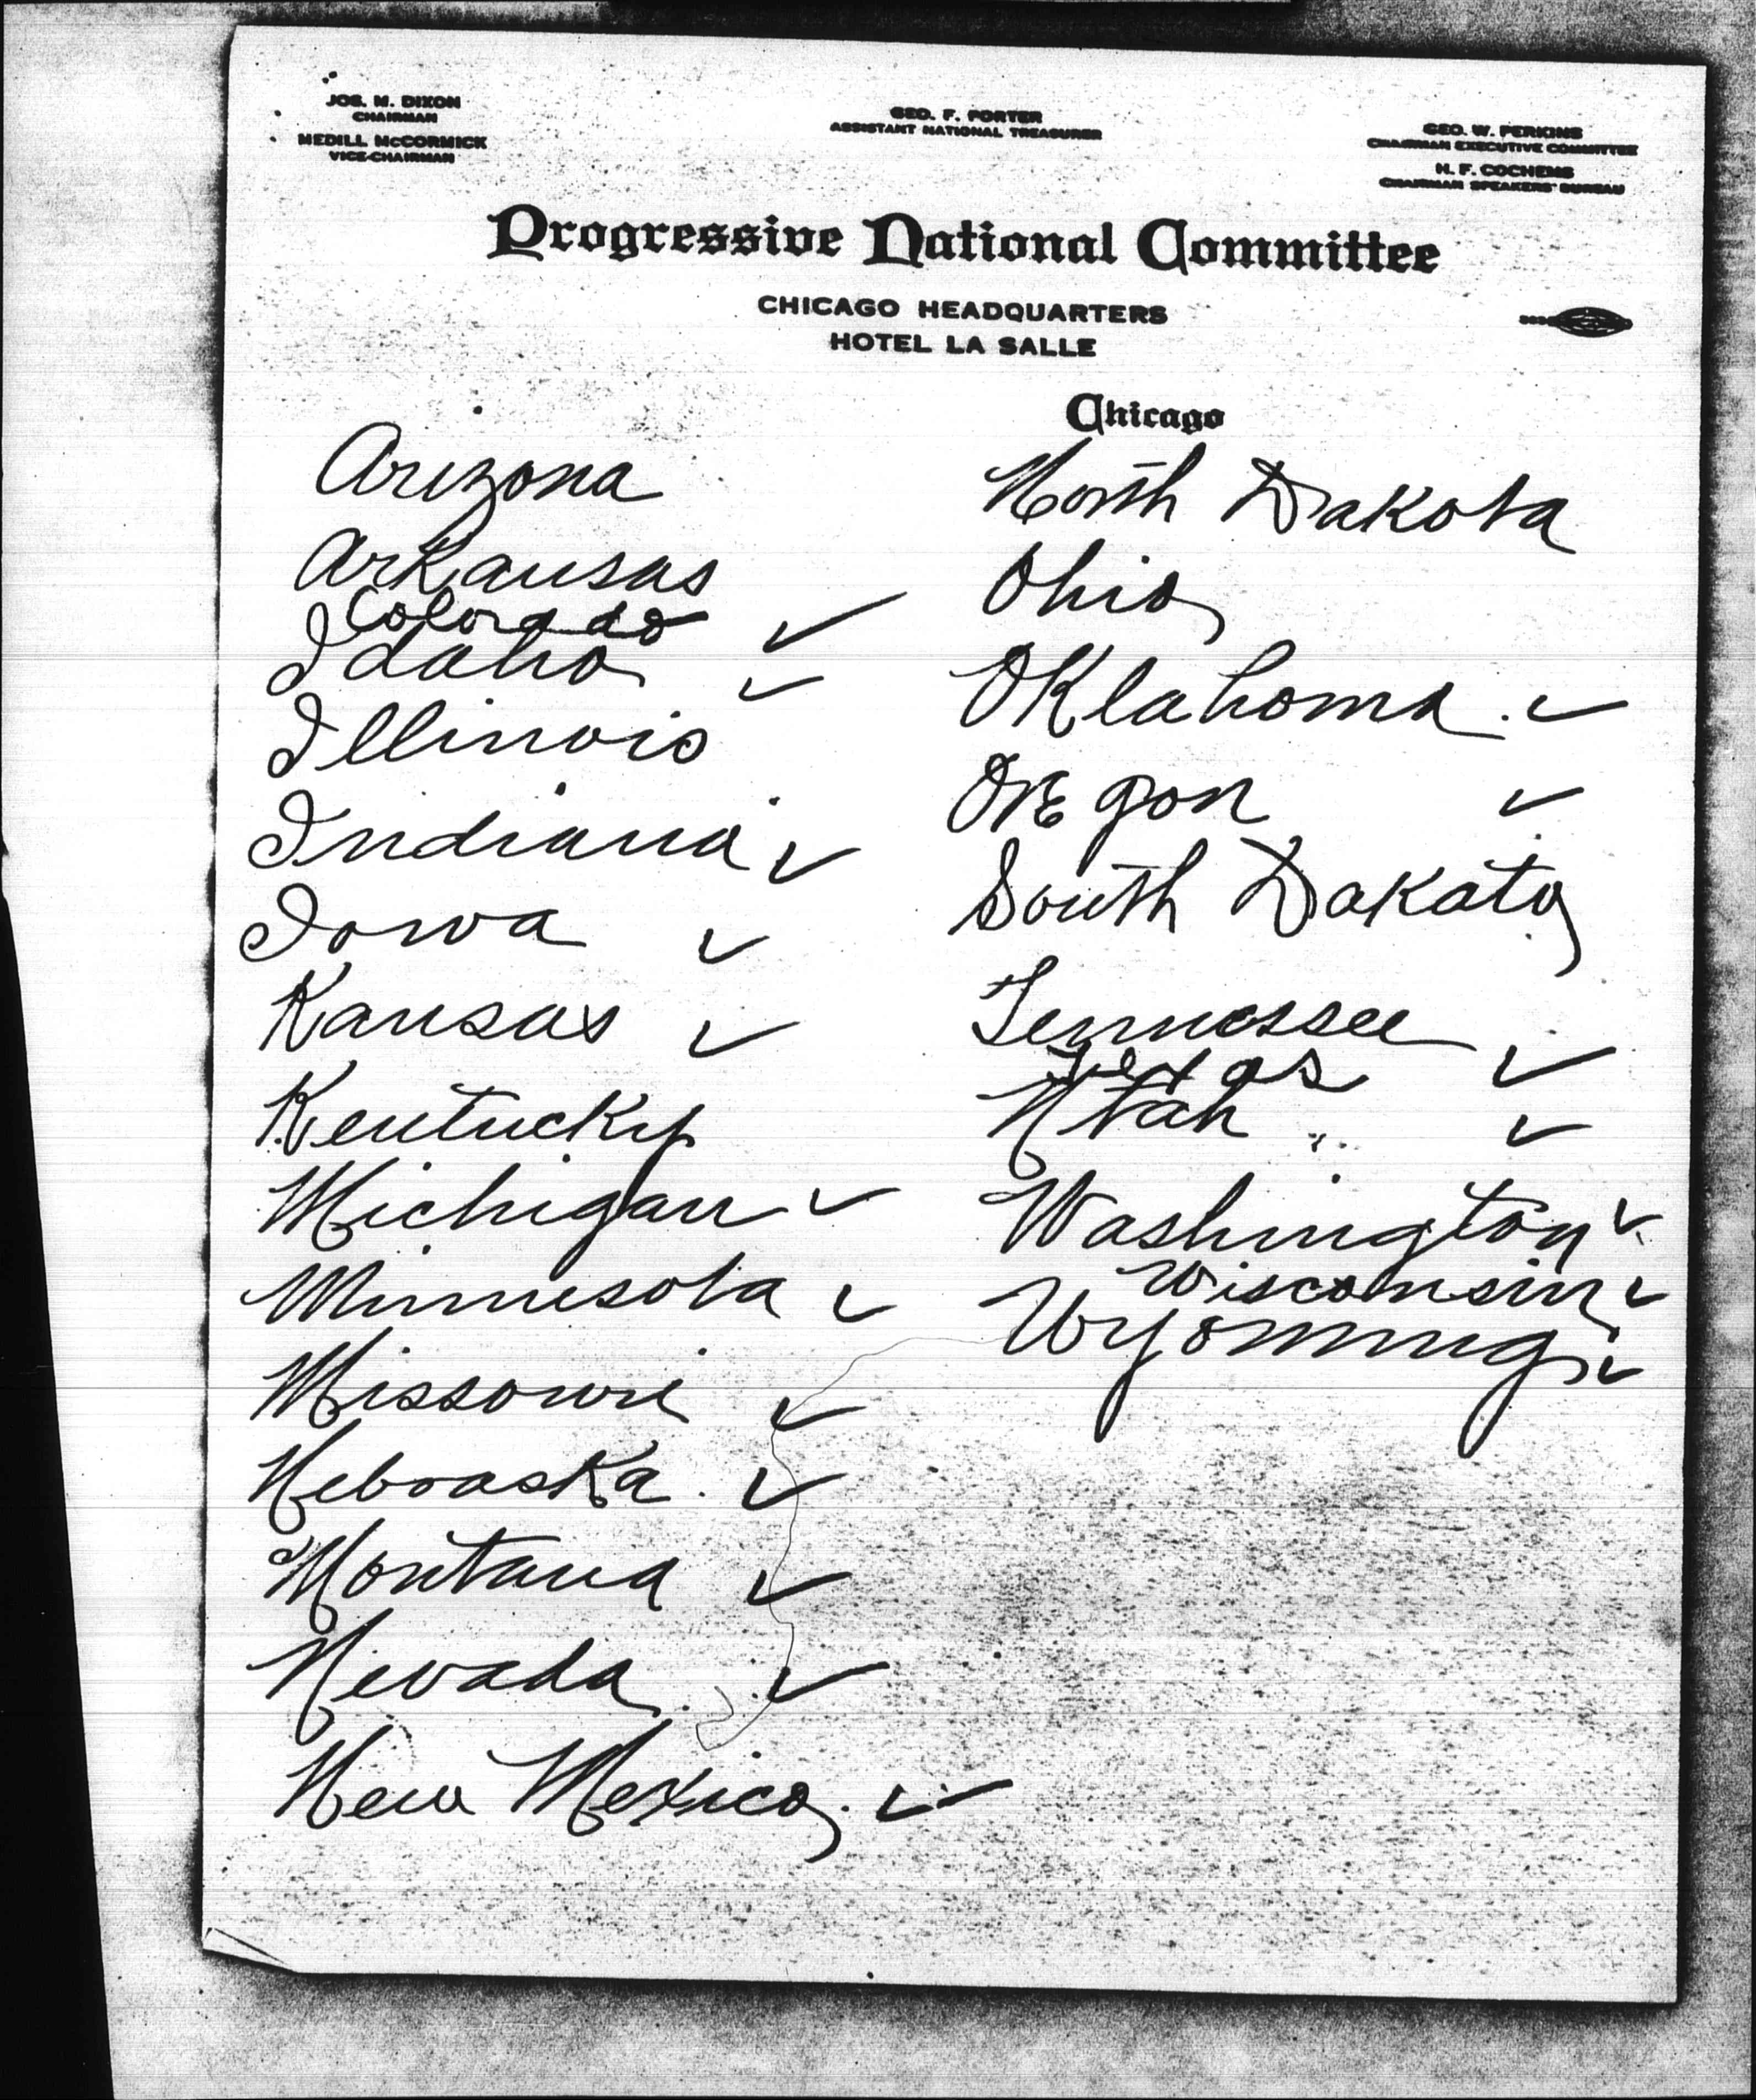 JOS. M. DIXON
CHAIRMAN
MEDILL McCORMICK
VICE-CHAIRMAN
GEO. F. PORTER
ASSISTANT NATIONAL TREASURER
GEO. W. PERKINS
CHAIRMAN EXECUTIVE COMMITTEE
H. F. COCHEMS
CHAIRMAN SPEAKERS' BUREAU
Progressive National Committee
CHICAGO HEADQUARTERS
HOTEL LA SALLE
Chicago
Arizona
Arkansas
Colorado ✓
Idaho ✓
Illinois
Indiana ✓
Iowa ✓
Kansas ✓
Kentucky
Michigan ✓
Minnesota ✓
Missouri ✓
Nebraska ✓
Montana ✓
Nevada ✓
New Mexico ✓
North Dakota
Ohio
Oklahoma ✓
Oregon ✓
South Dakota
Tennessee
Texas ✓
Utah ✓
Washington ✓
Wisconsin ✓
Wyoming ✓